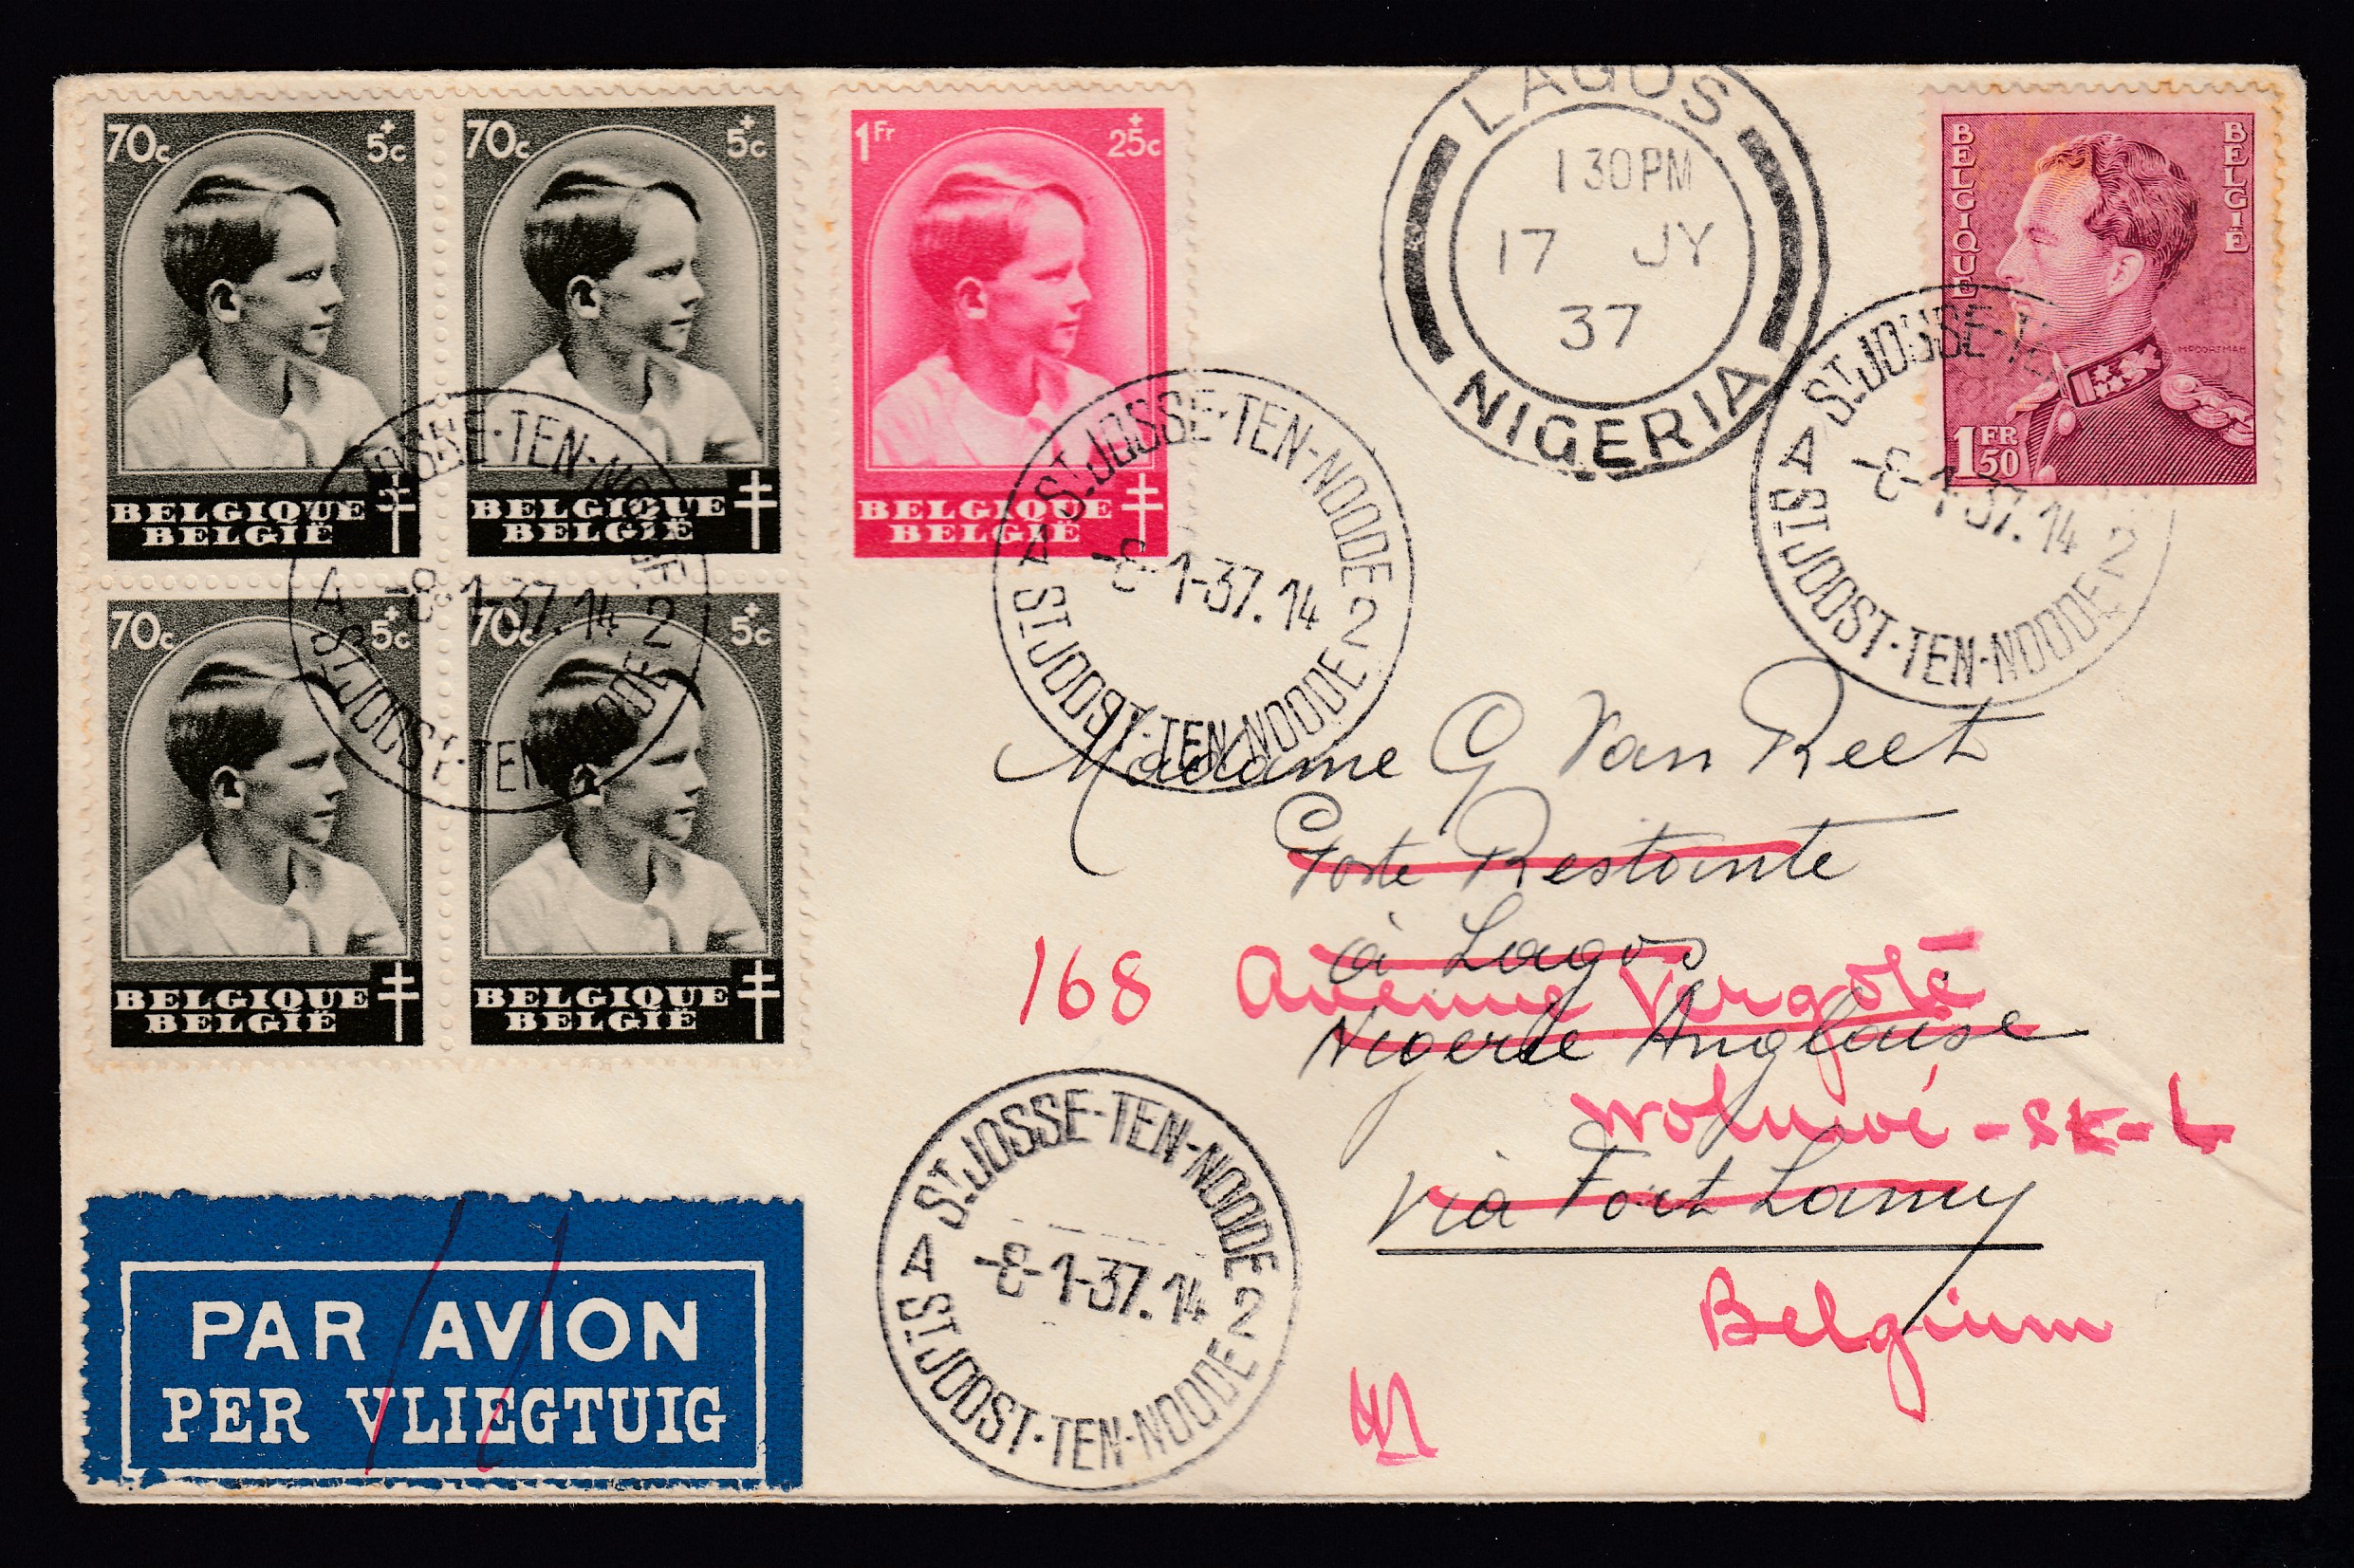 70c +5c
BELGIQUE
BELGIË
70c +5c
BELGIQUE
BELGIË
1Fr +25c
BELGIQUE
BELGIË
70c +5c
BELGIQUE
BELGIË
70c +5c
BELGIQUE
BELGIË
LAGOS
1 30PM
17 JY
37
NIGERIA
BELGIQUE
BELGIË
M.POORTMAN
1FR50
ST JOSSE-TEN-NOODE
A -8-1-37.14 2
ST JOOST-TEN-NOODE
ST JOSSE-TEN-NOODE
A -8-1-37.14 2
ST JOOST-TEN-NOODE
ST JOSSE-TEN-NOODE
A -8-1-37.14 2
ST JOOST-TEN-NOODE
Madame G Van Reet
Poste Restante
à Lagos
168 Avenue Vergote
Nigerie Anglaise
Woluwé-St-L
via Fort Lamy
Belgium
ST JOSSE-TEN-NOODE
A -8-1-37.14 2
ST JOOST-TEN-NOODE
PAR AVION
PER VLIEGTUIG